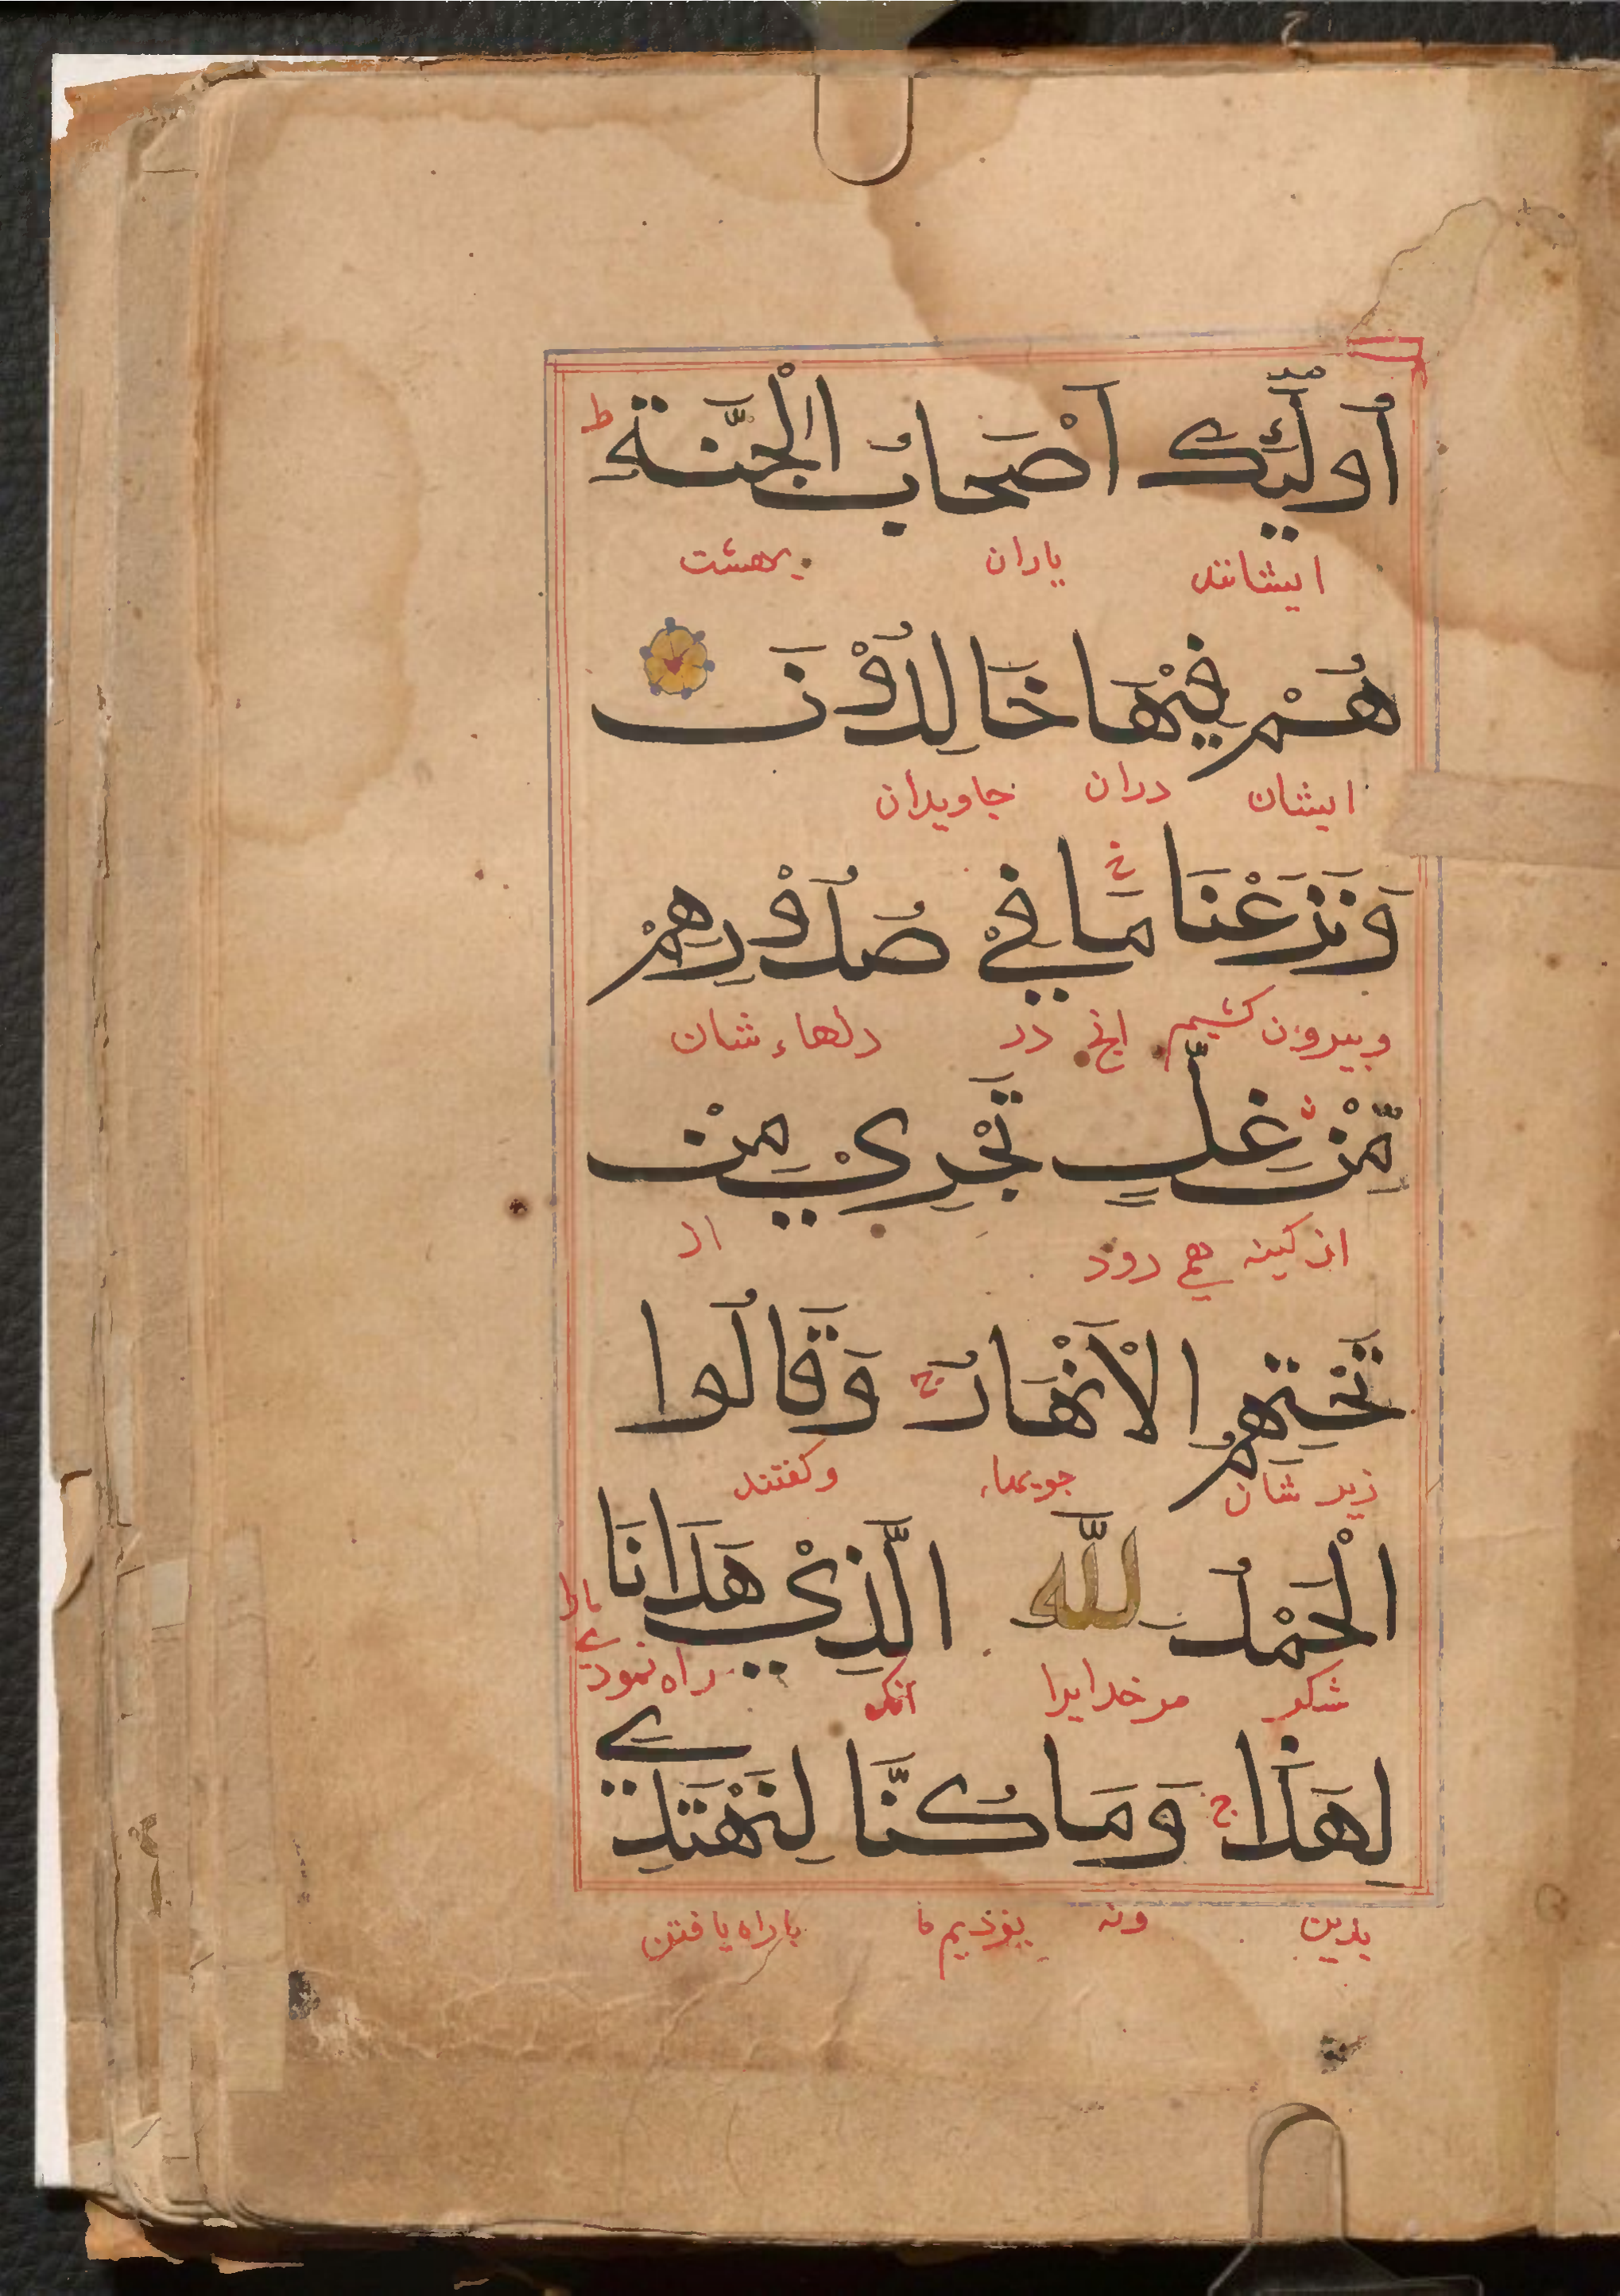 أُولَٰئِكَ أَصْحَابُ الْجَنَّةِ ط
ایشانند یاران بهشت
هُمْ فِيْهَا خَالِدُوْنَ
ایشان دران جاویدان
وَنَزَعْنَا مَا فِيْ صُدُوْرِهِمْ
وبیرون کشیم انچ در دلهاء شان
مِّنْ غِلٍّ تَجْرِيْ مِنْ
از کینه همی رود از
تَحْتِهِمُ الْأَنْهَارُ ج وَقَالُوا
زیر شان جویهاء وکفتند
الْحَمْدُ لِلَّهِ الَّذِيْ هَدَانَا
شکر مر خدایرا آنک راه نمود
لِهَذَا ج وَمَا كُنَّا لِنَهْتَدِيَ
بدین ونه بوذیم ما یا راه یافتن